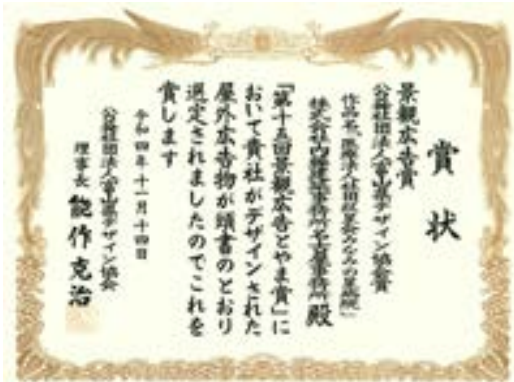 賞状
景観広告賞
公益社団法人富山県デザイン協会賞
作品名「医療法人社団
株式会社
殿
「第十五回景観広告とやま賞」に
おいて貴社がデザインされた
屋外広告物が頭書のとおり
選定されましたのでこれを
賞します
令和四年十一月十四日
公益社団法人富山県デザイン協会
理事長 能作克治